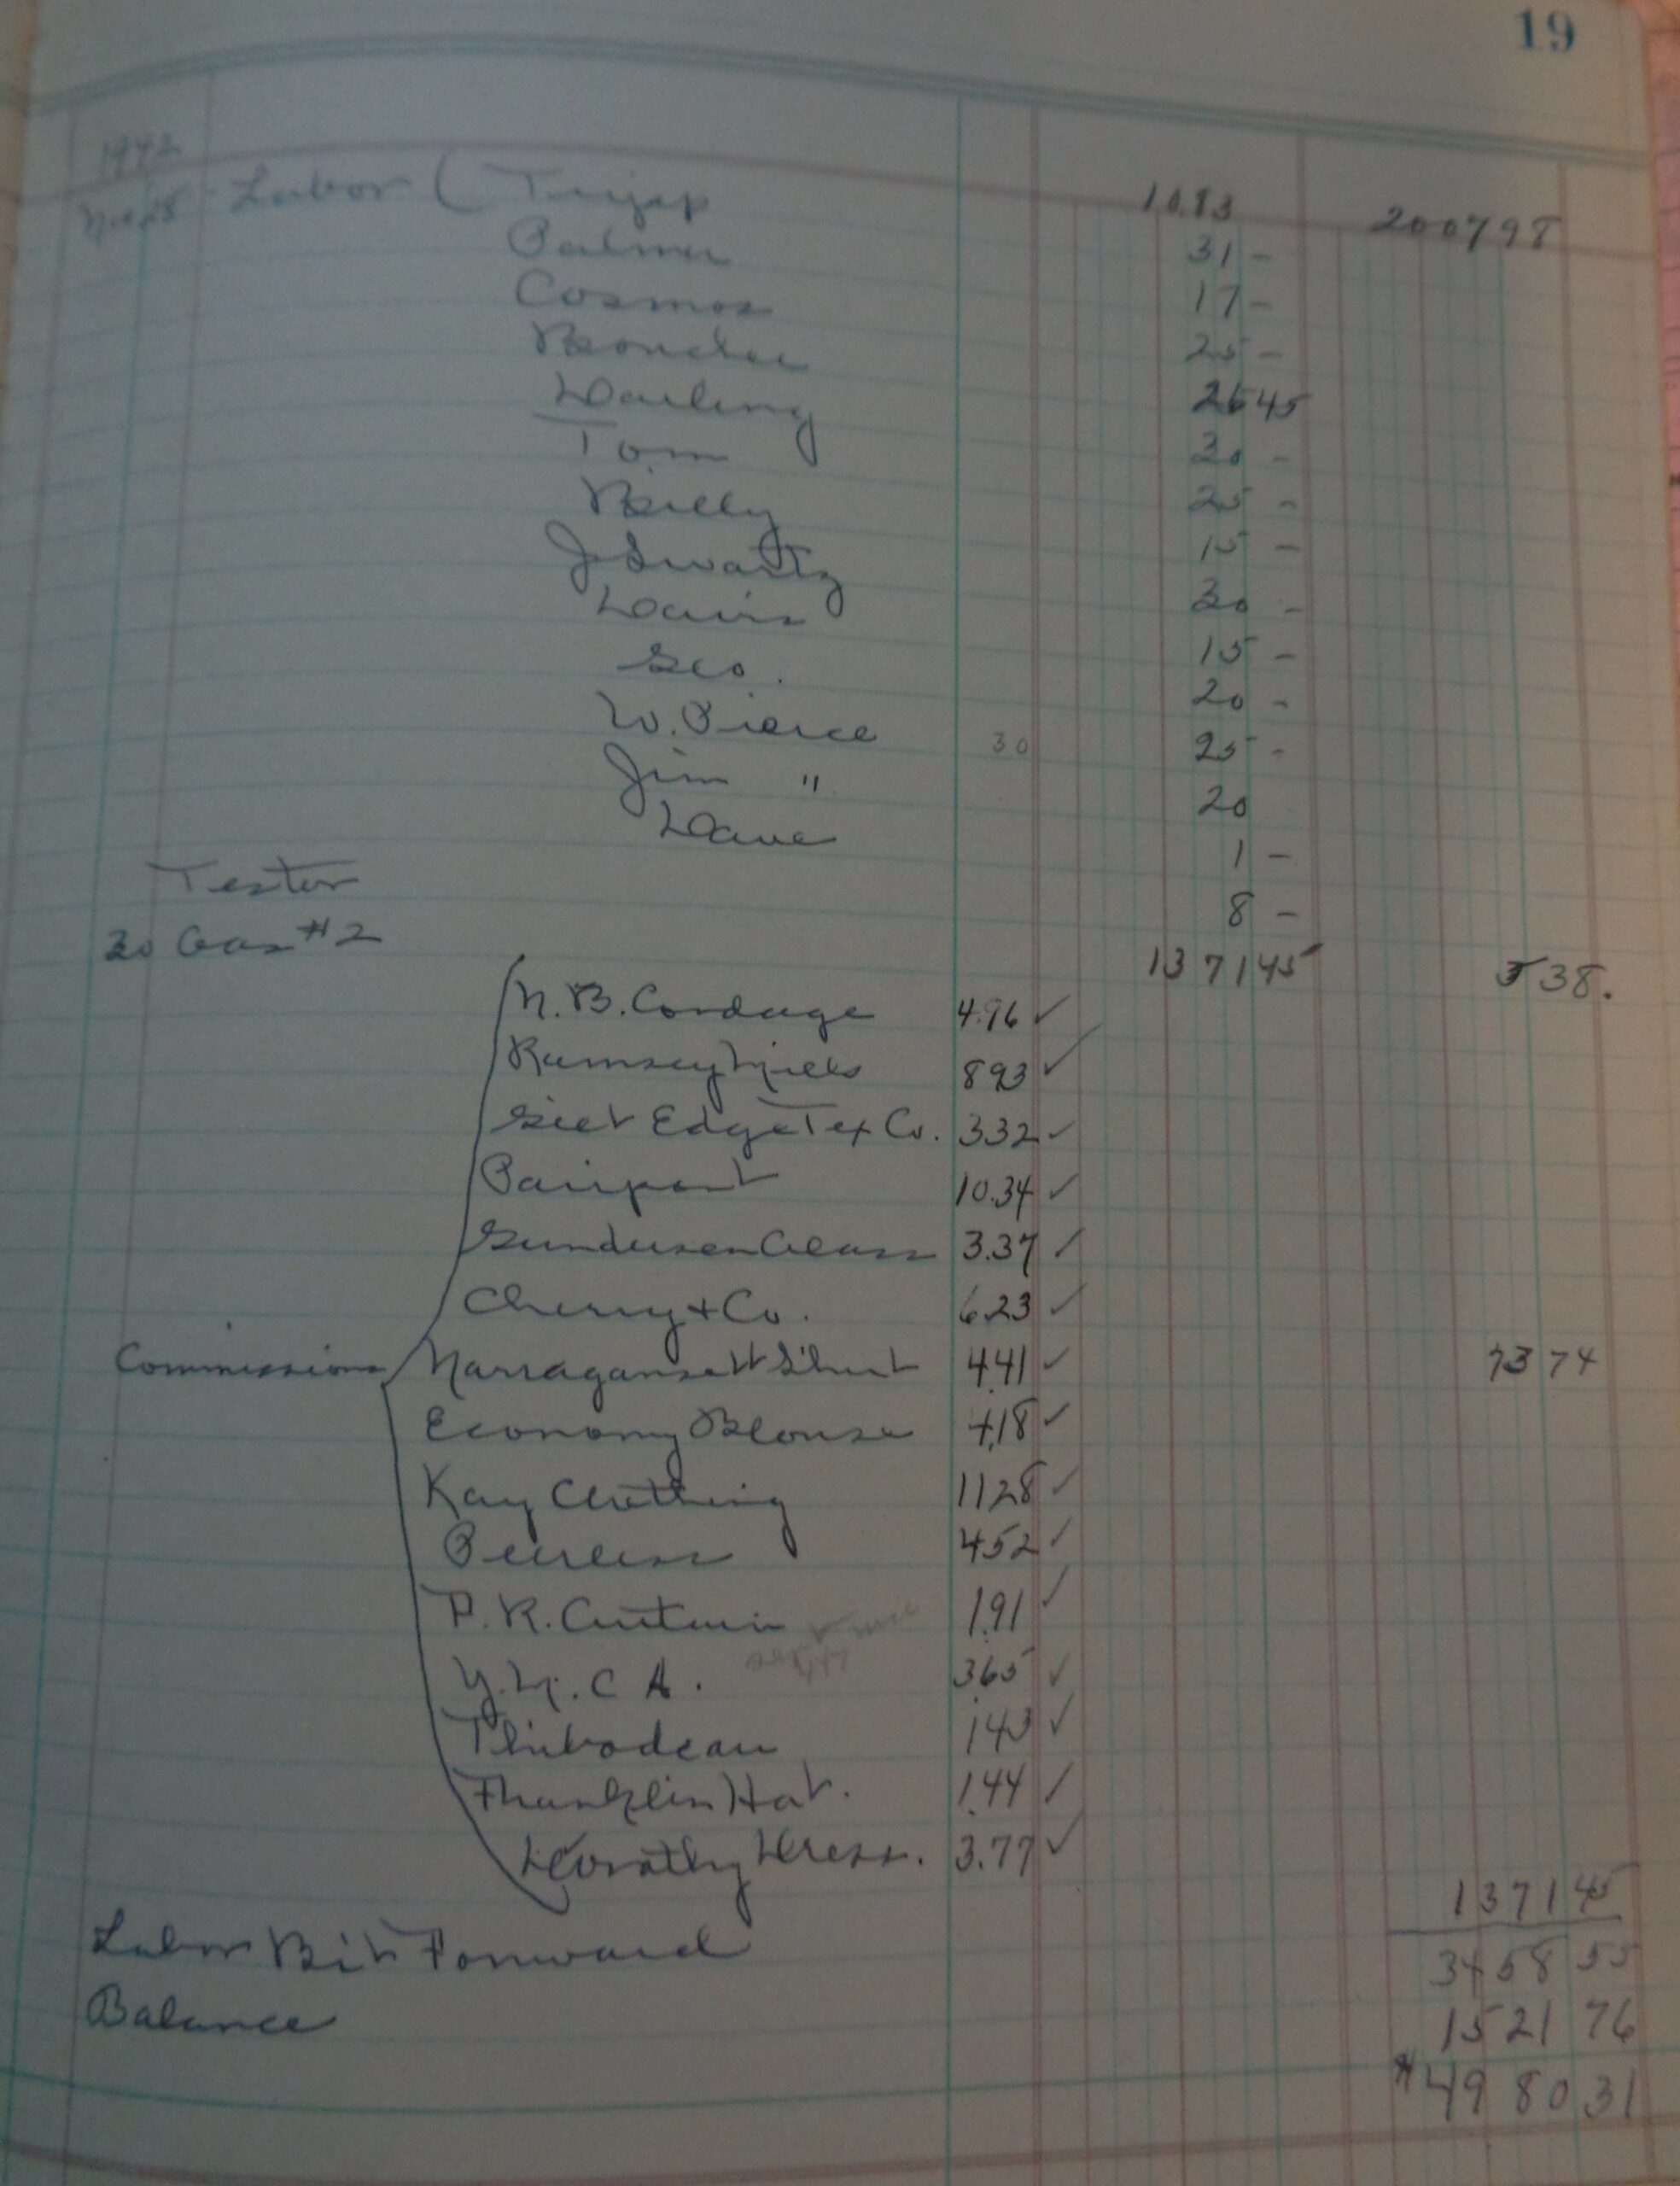 19
1942
Labor ( 1083 200798
Palmer 31 -
Cosmos 17 -
25 -
Darling 2645
Tom 30 -
Billy 25 -
J Swartz 15 -
Davis 30 -
Geo. 15 -
W. Pierce 20 -
Jim " 30 25 -
Dave 20
Tester 1 -
30 Gas #2 8 -
137145 538.
N. B. Cordage 4.96 ✓
Ramsey Mills 893 ✓
Gilt Edge Tex Co. 332 ✓
Pairpoint 10.34 ✓
Gundersen Glass 3.37 ✓
Cherry + Co. 6.23 ✓
Commissions Narragansett Shirt 4.41 ✓ 7374
Economy Blouse 4.18 ✓
Kay Clothing 1128 ✓
Peerless 452 ✓
P. R. Curtain 1.91 ✓
Y. M. C A. 365 ✓
Thibodeau 143 ✓
Franklin Hat. 1.44 ✓
Dorothy Dress. 3.77 ✓
Labor B't Forward 137145
345855
Balance 152176
498031